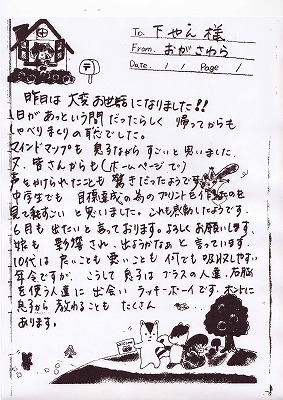 To. 下やえん 様
From. おがさわら
Date. / / Page /
昨日は 大変お世話になりました!!
1日が あっという間だったらしく 帰ってからも
しゃべりまくりの 息子でした。
マインドマップも 息子ながら すごいと思いました。
又、皆さんからも(ホームページで)
声をかけられたことも 驚きだったようです
中学生でも 目標達成の為のプリントを作ったのを
見て 転すごい と思いました。これも感動したようです。
6月も 出たいと言っております。よろしくお願いします。
娘も 影響され、出ようかなぁ と 言っています。
10代は 良いことも 悪いことも 何でも 吸収しやすい
年令ですが、こうして 息子は プラスの人達、右脳
を使う人達に 出会い ラッキーボーイです。ホントに
息子から 教わることも たくさん
あります。